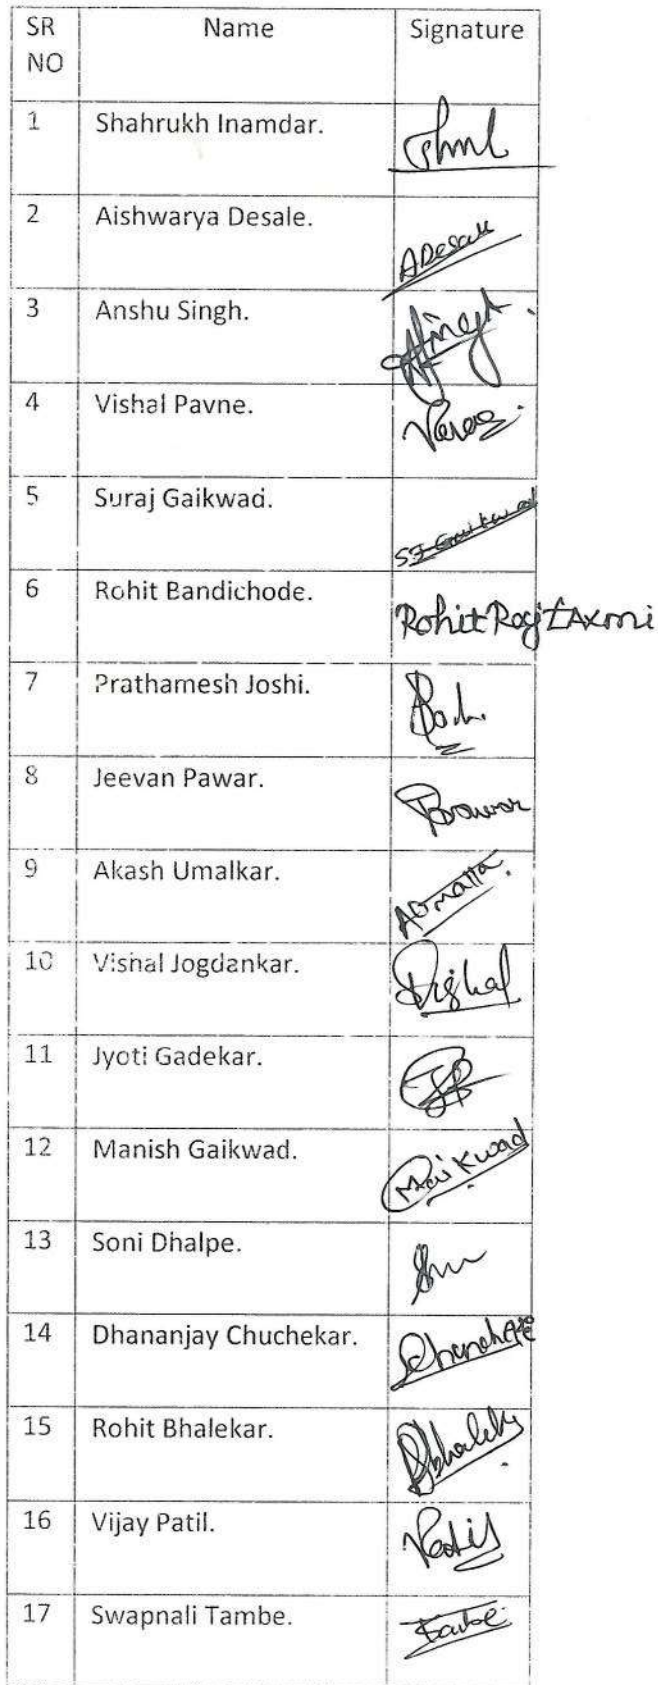 SR NO Name Signature
1 Shahrukh Inamdar.
2 Aishwarya Desale. ADesale
3 Anshu Singh.
4 Vishal Pavne.
5 Suraj Gaikwad. SJ Gaikwad
6 Rohit Bandichode. Rohit Raj LAxmi
7 Prathamesh Joshi.
8 Jeevan Pawar.
9 Akash Umalkar.
10 Vishal Jogdankar. Vishal
11 Jyoti Gadekar.
12 Manish Gaikwad.
13 Soni Dhalpe.
14 Dhananjay Chuchekar.
15 Rohit Bhalekar.
16 Vijay Patil. VPatil
17 Swapnali Tambe.